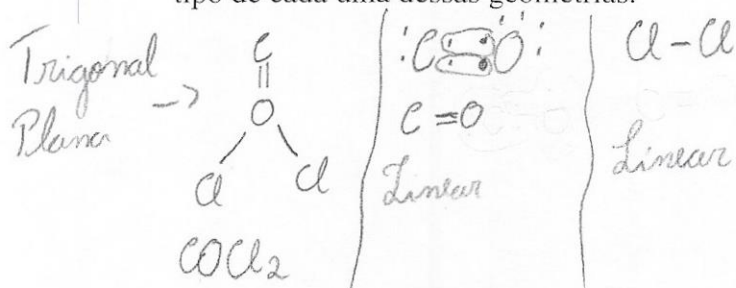 tipo de cada uma dessas geometrias.
Trigonal
Plana ->
C
||
O
Cl Cl
COCl2
:C::O:
C=O
Linear
Cl-Cl
Linear